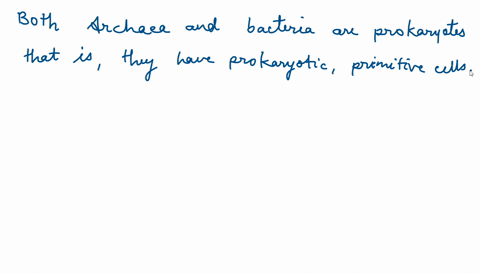 Both Archaea and bacteria are prokaryotes
that is, they have prokaryotic, primitive cells.